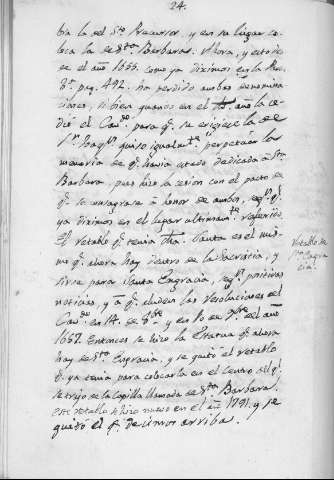 24.
bía la del Sto. Precursor, y en su lugar co-
loca la de Sta. Barbara. Ahora, y esto des-
de el año 1655. como ya diximos en la
pag. 492. ha perdido ambas denomina
ciones, si bien quando en el año la ce-
dió el Cavdo. para q. se erigiese la de
Sn. Joaqn. quiso igualmte. perpetuar la
memoria de q. havia estado dedicada a Sta.
Barbara, pues hizo la cesion con el pacto de
q. se consagrase a honor de ambos, segn. q.
ya diximos en el lugar ultimamte. referido.
El retablo q. tenia dha. Santa es el mis-
mo q. ahora hay dentro de la Sacristia, y
sirve para Santa Engracia, segn. positivas
noticias, y á q. aluden las resoluciones del
Cavdo. en 14. de 8bre. y en 10 de 9bre. del año
1657. Entonces se hizo la Estatua q. ahora
hay de Sta. Engracia, y se quitó el retablo
q. ya tenia para colocarla en el centro del q.
se trajo de la Capilla llamada de Sta. Barbara.
este retablo se hizo nuevo en el año 1791. y se
quitó el q. decimos arriba.
Retablo de
Sta. Engra
cia.